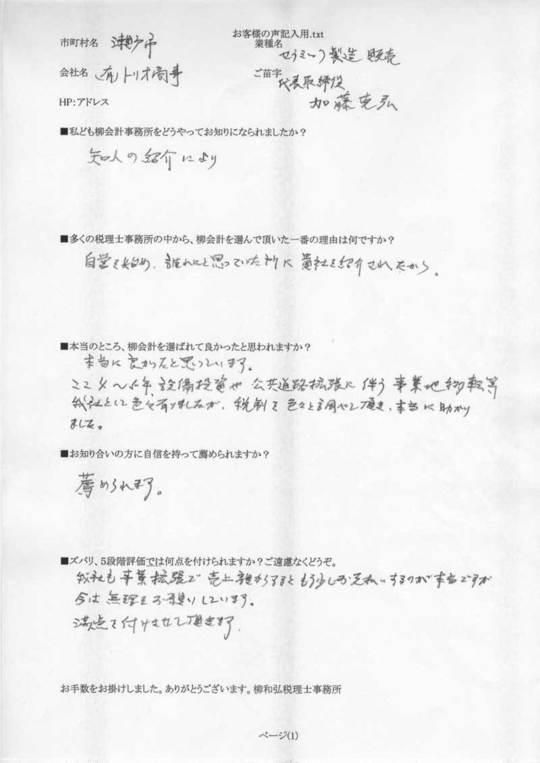 お客様の声記入用.txt
市町村名 瀬戸市 業種名 セラミック製造 販売
会社名 (有)トリオ商事 ご苗字 代表取締役
加藤克弘
HP:アドレス
■私ども柳会計事務所をどうやってお知りになられましたか？
知人の紹介により
■多くの税理士事務所の中から、柳会計を選んで頂いた一番の理由は何ですか？
自営を始め、誰れにと思っていた所に貴社を紹介されたから。
■本当のところ、柳会計を選ばれて良かったと思われますか？
本当に良かったと思っています。
ここ4〜5年、設備投資や公共道路拡張に伴う事業地移転等
弊社として色々有りましたが、税制を色々と調べて頂き、本当に助かり
ました。
■お知り合いの方に自信を持って薦められますか？
薦められます。
■ズバリ、5段階評価では何点を付けられますか？ご遠慮なくどうぞ。
弊社も事業拡張で売上額からするともう少しお支払いするのが本当ですが
今は無理をお願いしています。
満点を付けさせて頂きます。
お手数をお掛けしました。ありがとうございます。柳和弘税理士事務所
ページ(1)